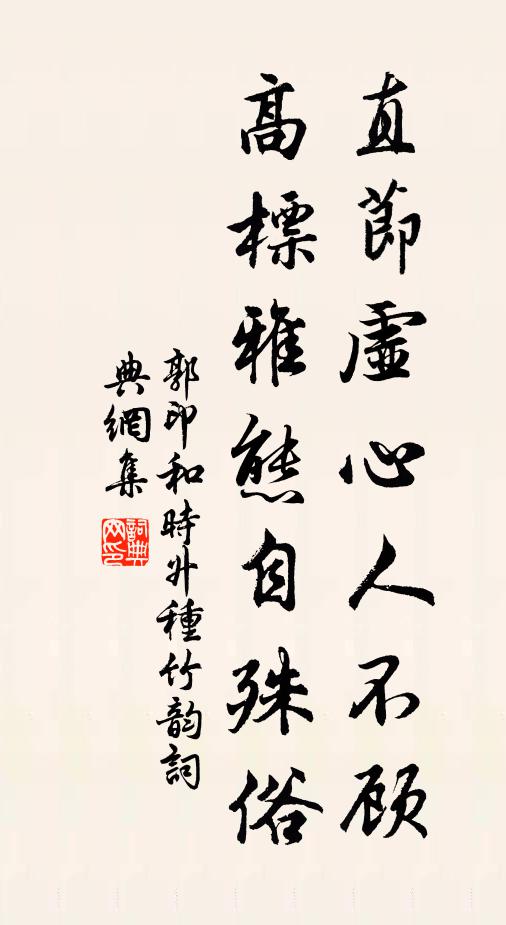 直節虛心人不顾
高標雅態自殊俗
郭印和時升種竹韵詞
典網集
詞典
网印